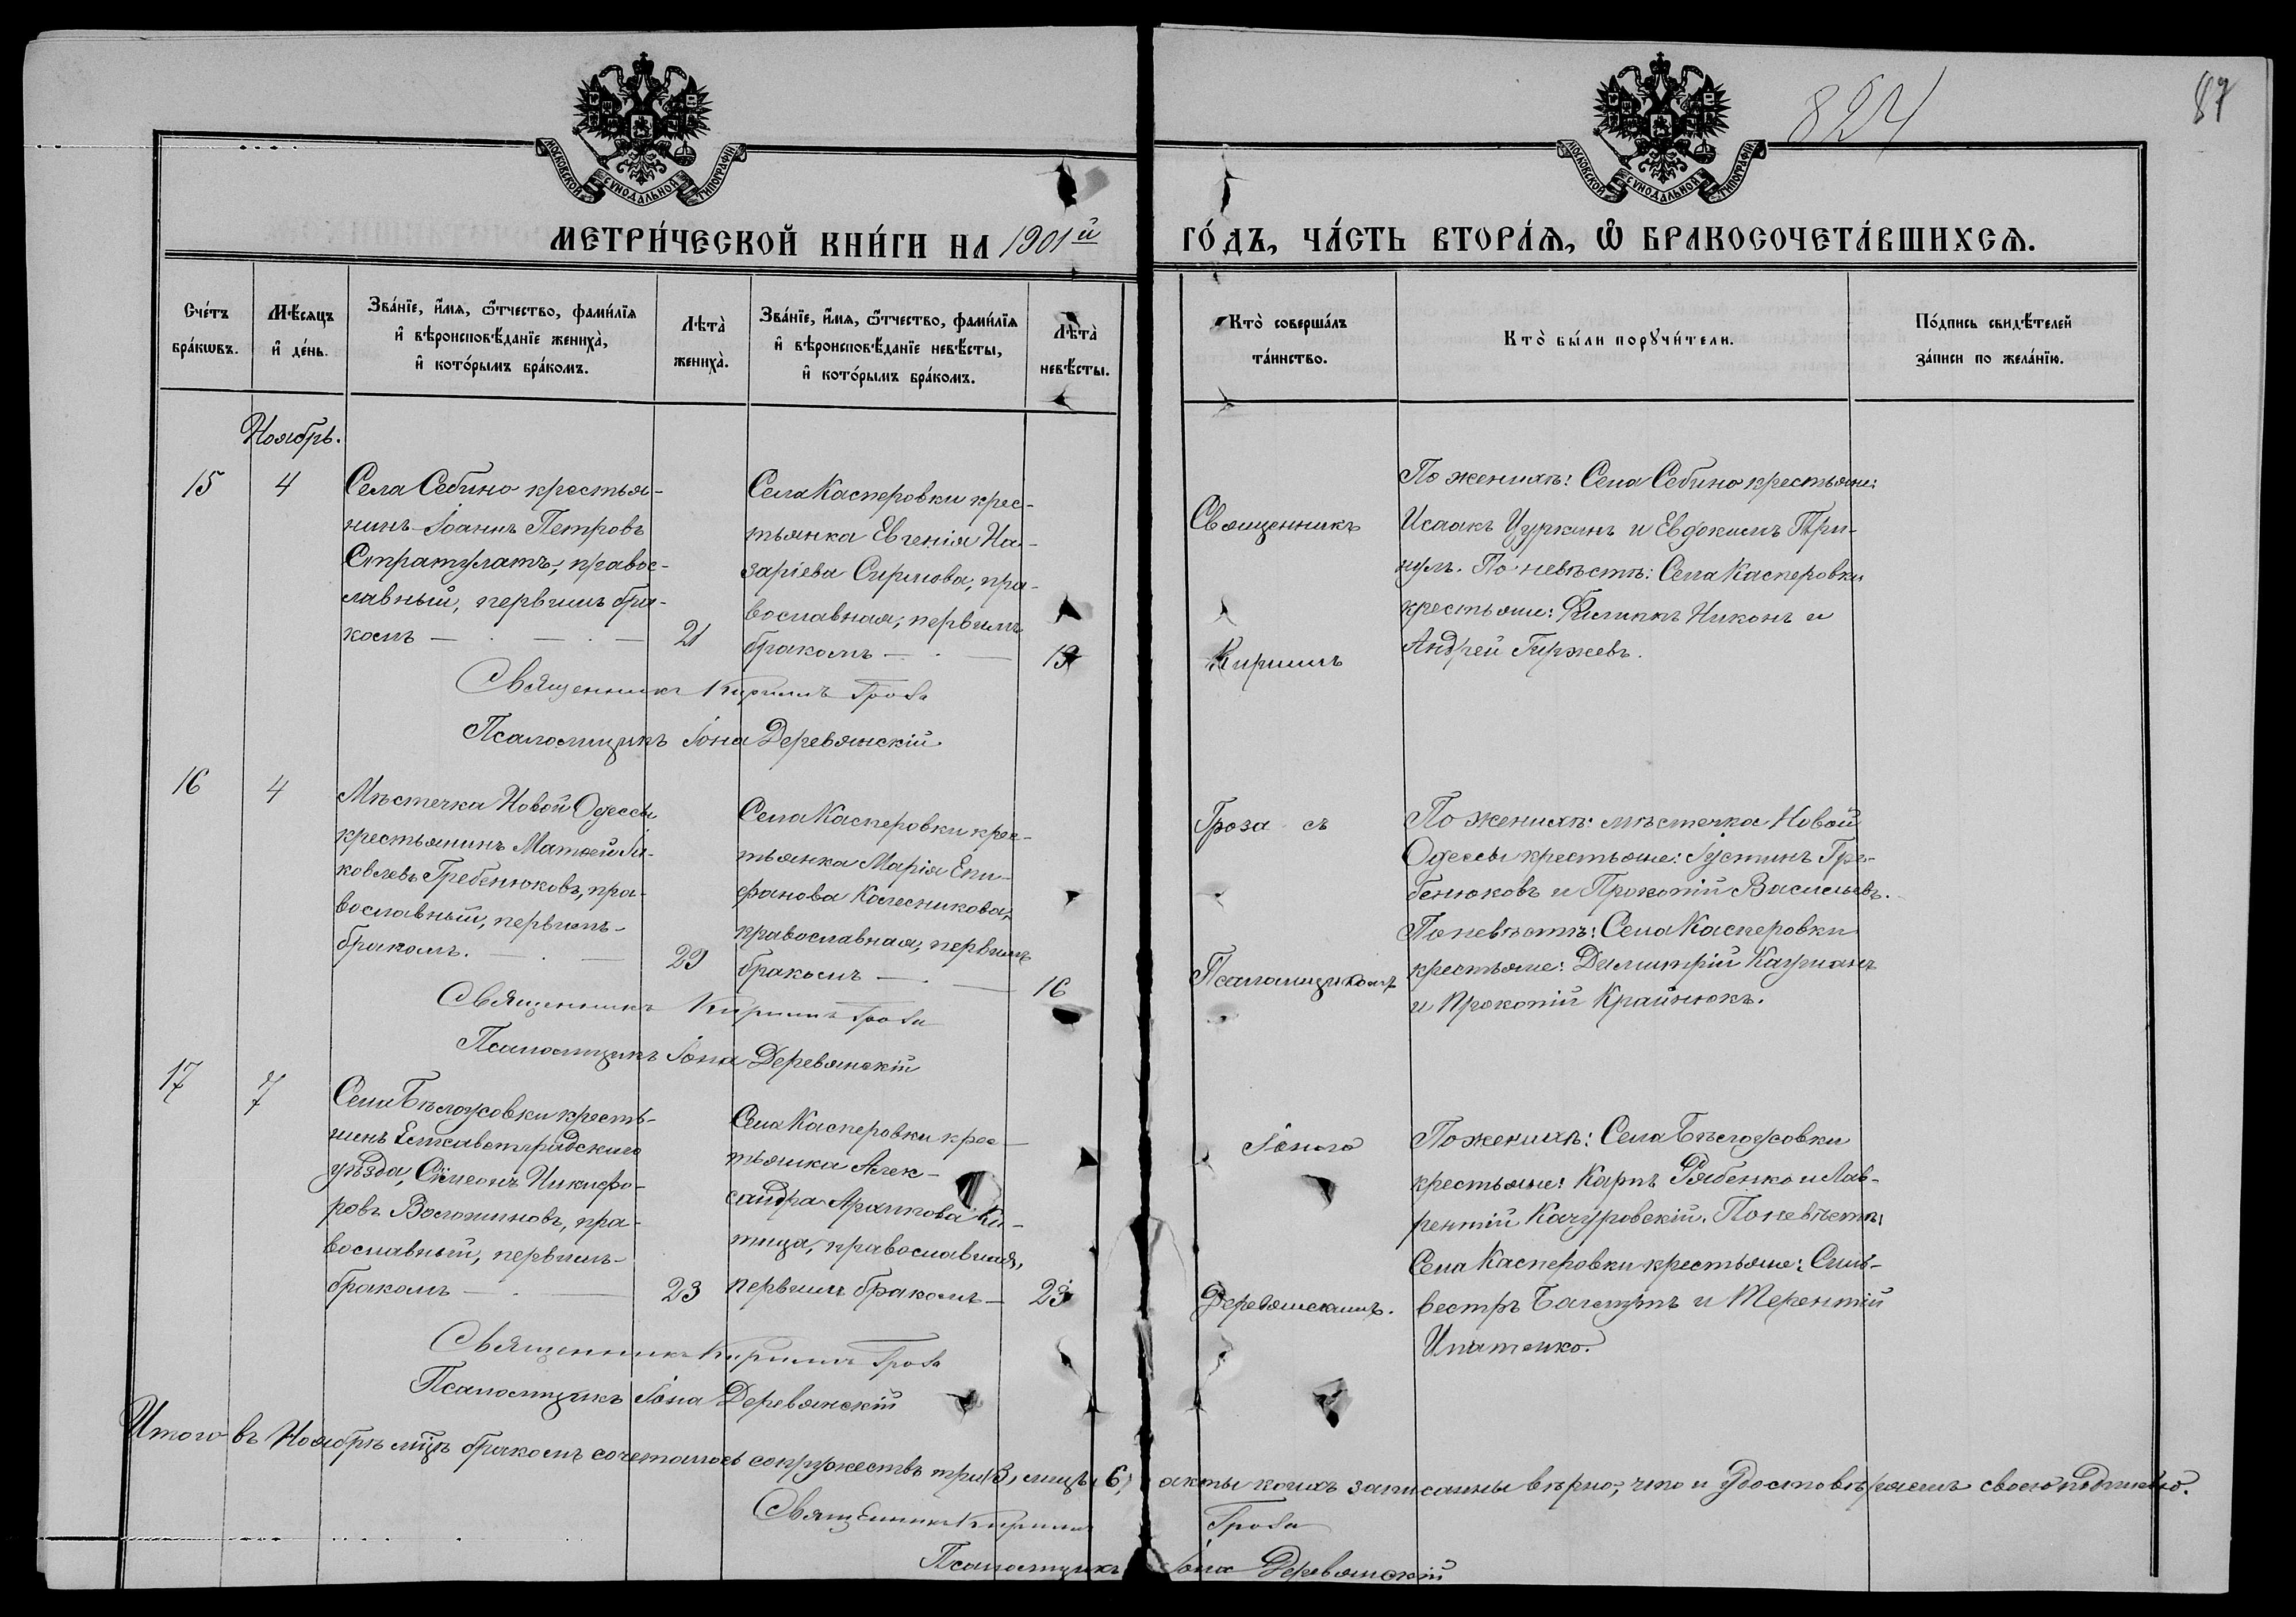 МОСКОВСКОЙ СѴНОДАЛЬНОЙ ТИПОГРАФІИ
МОСКОВСКОЙ СѴНОДАЛЬНОЙ ТИПОГРАФІИ
824
87
МЕТРИ́ЧЕСКОЙ КНИ́ГИ НА 1901й
ГО́ДЪ, ЧА́СТЬ ВТОРА́Ѧ, Ѡ҆ БРАКОСОЧЕТА́ВШИХСѦ.
Сче́тъ
бра́кѡвъ.
Мѣ́сѧцъ
и҆ де́нь.
Зва́нїе, и҆́мѧ, ѻ҆́тчество, фами́лїѧ
и҆ вѣроисповѣ́данїе женихà,
и҆ кото́рымъ бра́комъ.
Лѣтà
женихà.
Зва́нїе, и҆́мѧ, ѻ҆́тчество, фами́лїѧ
и҆ вѣроисповѣ́данїе невѣ́сты,
и҆ кото́рымъ бра́комъ.
Лѣтà
невѣ́сты.
Ктò соверша́лъ
та́инство.
Ктò бы́ли порꙋчи́тели.
По́дпись свидѣ́телей
за́писи по жела́нїю.
Ноябрь.
15
4
Села Себино крестья-
нинъ Іоаннъ Петровъ
Стратулатъ, правос-
лавный, первымъ бра-
комъ
21
Села Касперовки крес-
тьянка Евгенія На-
заріева Сирмова, пра-
вославная, первымъ
бракомъ
19
Священникъ
Кириллъ
По женихѣ: Села Себино крестьяне:
Исаакъ Цуркинъ и Евдокимъ При-
нулъ. По невѣстѣ: Села Касперовки
крестьяне: Филиппъ Никонъ и
Андрей Гиржевъ.
Священникъ Кириллъ Гроза
Псаломщикъ Іона Деревянскій
16
4
Мѣстечка Новой Одессы
крестьянинъ Матѳей Іа-
ковлевъ Гребенюковъ, пра-
вославный, первымъ
бракомъ.
29
Села Касперовки крес-
тьянка Марія Епи-
фанова Колесникова,
православная, первымъ
бракомъ
16
Гроза съ
Псаломщикомъ
По женихѣ: мѣстечка Новой
Одессы крестьяне: Іустинъ Гре-
бенюковъ и Прокопій Васильевъ.
По невѣстѣ: Села Касперовки
крестьяне: Димитрій Кауманъ
и Прокопій Крайнюкъ.
Священникъ Кириллъ Гроза
Псаломщикъ Іона Деревянскій
17
7
Села Бѣлоусовки кресть-
нинъ Елисаветградскаго
уѣзда, Сімеонъ Никифо-
ровъ Волошиновъ, пра-
вославный, первымъ
бракомъ
23
Села Касперовки крес-
тьянка Алек-
сандра Архипова Ки-
тица, православная,
первымъ бракомъ
23
Іоною
Деревянскимъ.
По женихѣ: Села Бѣлоусовки
крестьяне: Карпъ Рябенко и Лав-
рентій Качуровскій. По невѣстѣ:
Села Касперовки крестьяне: Силь-
вестръ Балтутъ и Терентій
Ипатенко.
Священникъ Кириллъ Гроза
Псаломщикъ Іона Деревянскій
Итого въ Ноябрѣ мцѣ бракомъ сочеталось супружествъ три (3, лицъ (6) акты коихъ записанны вѣрно, что и удостовѣряемъ своею подписью.
Священникъ Кириллъ Гроза
Псаломщикъ Іона Деревянскій